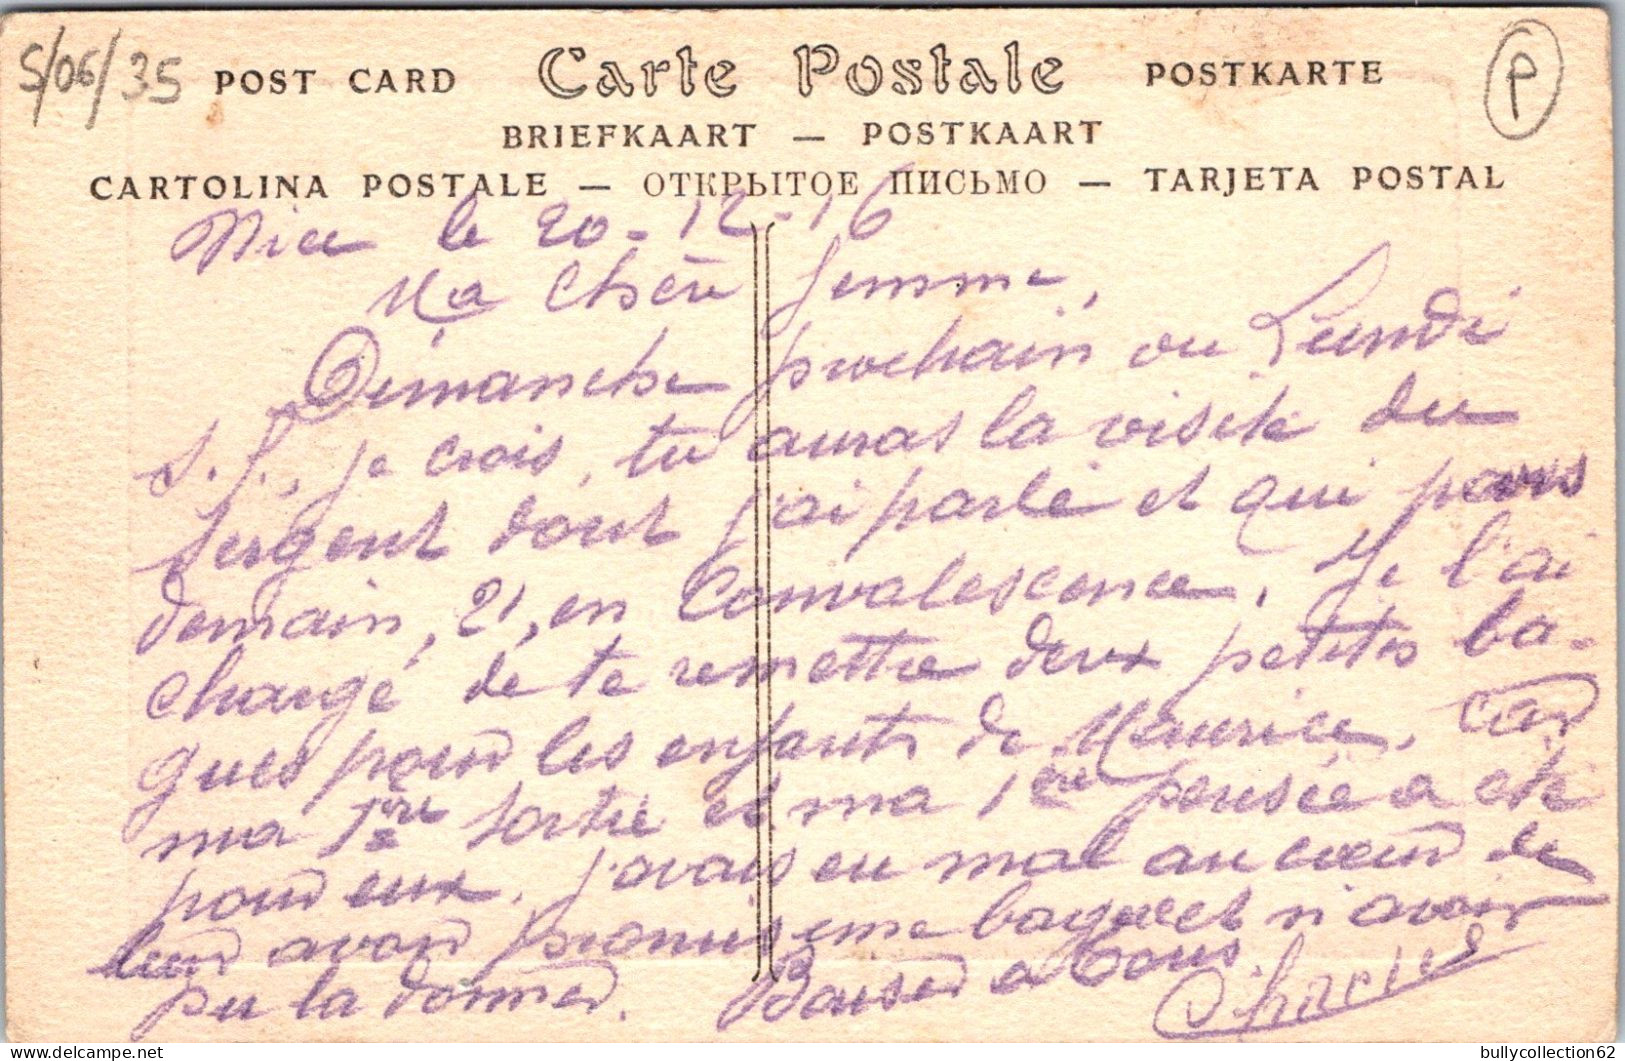 5/06/35
P
POST CARD Carte Postale POSTKARTE
BRIEFKAART — POSTKAART
CARTOLINA POSTALE — ОТКРЫТОЕ ПИСЬМО — TARJETA POSTAL
Nice le 20-12-16
Ma Chère femme,
Dimanche prochain ou Lundi
s. f., je crois, tu auras la visite du
sergent dont j'ai parlé et qui pars
demain, 21, en Convalescence. Je l'ai
chargé de te remettre deux petites ba-
gues pour les enfants de Maurice, car
ma 1ère sortie et ma 1ère pensée a été
pour eux. J'avais eu mal au cœur de
leur avoir promis une bague et n'avoir
pu la donner. Baiser a tous
Charles
bullycollection62